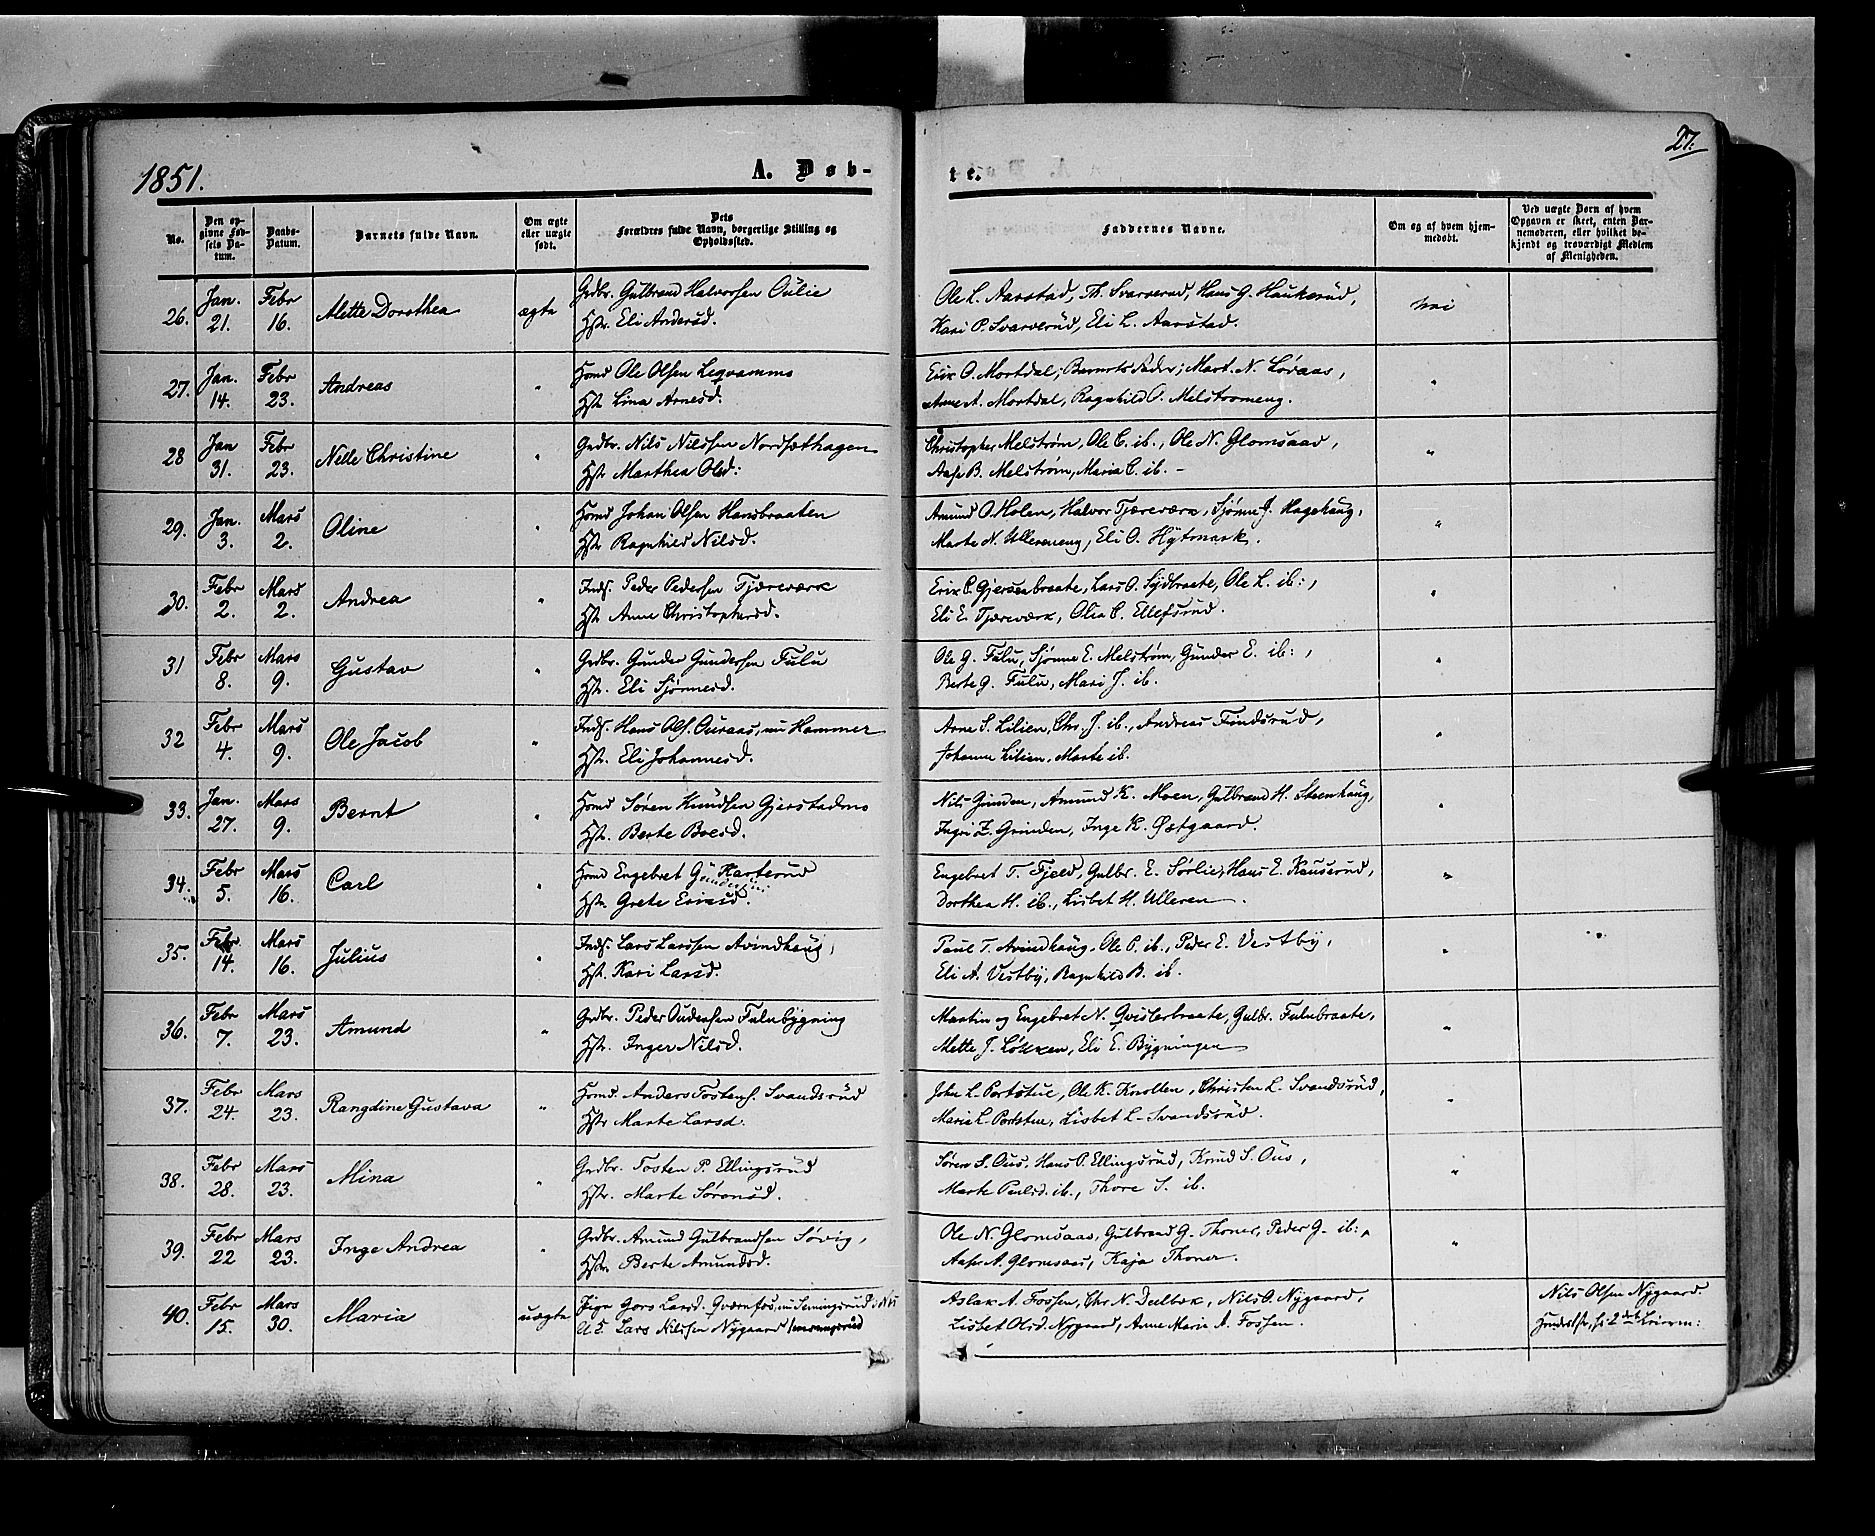 1851.
A. Døb-
te.
27.
No.
Den op-
givne Fød-
sels Da-
tum.
Daabs-
Datum.
Barnets fulde Navn.
Om ægte
eller uægte
født.
Dets
Forældres fulde Navn, borgerlige Stilling og
Opholdssted.
Faddernes Navne.
Om og af hvem hjem-
medøbt.
Ved uægte Børn af hvem
Opgaven er skeet, enten Bar-
nemoderen, eller hvilket be-
kjendt og troværdigt Medlem
af Menigheden.
26. Jan. 21. Febr 16. Mette Dorothea ægte
Grdbr. Gulbrand Halvorsen Oulie
Hstr. Eli Andersd.
Ole L. Aarstad, Th. Svarverud, Hans G. Haukerud,
Kari P. Svarverud, Eli L. Aarstad.
nei
27. Jan. 14. Febr 23. Andreas "
Homd Ole Olsen Leqvamms
Hstr. Lina Arnesd.
Erik O. Mortdal, Barnets Fader, Mart. N. Løvaas,
Anne A. Mortdal, Ragnhild O. Melstromeng.
"
28 Jan 31. Febr 23. Nelle Christine "
Grdbr. Nils Nilssen Nordsethagen
Hstr. Marthea Olsd:
Christopher Melstrøm, Ole C. ib., Ole N. Glomsaas,
Aase B. Melstrøm, Maria C. ib. –
"
29. Jan. 3. Mars 2. Oline "
Homd Johan Olsen Hansbraaten
Hstr. Ragnhild Nilsd.
Amund O. Holen, Halvor Tjæreværk, Sjønne J. Hagehaug,
Marte N. Ullereneng, Eli O. Hytmark.
"
30. Febr 2. Mars 2. Andrea "
Inds. Peder Pedersen Tjæreværk
Hstr. Anne Christophersd.
Erik P. Gjersenbraate, Lars O. Sydbraate, Ole L. ib:,
Eli E. Tjæreværk, Olea C. Ellefsrud.
"
31 Febr 8. Mars 9. Gustav "
Grdbr. Gunder Gundersen Fulu
Hstr. Eli Sjønnesd.
Ole G. Fulu, Sjønne E. Melstrøm, Gunder E. ib:,
Berte G. Fulu, Mari J. ib.
"
32 Febr 4. Mars 9. Ole Jacob "
Inds. Hans Ols. Ouraas, nu Hammer
Hstr. Eli Johannesd.
Arne S. Lilien, Chr. J. ib., Andreas Findsrud,
Johanne Lilien, Marte ib.
"
33. Jan. 27. Mars 9. Bernt "
Homd Søren Knudsen Gjerstadmo
Hstr. Berte Boesd.
Nils Grinden, Amund K. Moen, Gulbrand H. Steenhaug,
Ingri Z. Grinden, Inge K. Østgaard.
"
34. Febr 5. Mars 16. Carl "
Homd Engebret Gundersen Harterud
Hstr. Grete Ericsd.
Engebret T. Fjeld, Gulbr. E. Sørlie, Hans E. Kauserud,
Dorthea H. ib., Lisbet H. Ulleren
"
35. Febr. 14. Mars 16. Julius "
Inds. Lars Larssen Avindhaug,
Hstr. Kari Larsd.
Paul T. Avindhaug, Ole P. ib., Peder E. Vestby,
Eli A. Vestby, Ragnhild B. ib.
"
36. Febr 7. Mars 23. Amund "
Grdbr. Peder Oudensen Fulubygning
Hstr. Inger Nilsd.
Martin og Engebret N. Qvislerbraate, Gulbr. Fulubraate,
Mette J. Løkken, Eli E. Bygningen
"
37. Febr 24. Mars 23. Rangdine Gustava "
Homd. Anders Tostens. Svandsrud
Hstr Marte Larsd.
John L. Portstue, Ole K. Knollen, Christen L. Svandsrud,
Maria L. Portstue, Lisbet L. Svandsrud.
"
38. Febr 28. Mars 23. Mina "
Grdbr. Tosten P. Ellingsrud
Hstr. Marte Sørensd.
Søren S. Ous, Hans P. Ellingsrud, Knud S. Ous,
Marte Paulsd. ib., Thore S. ib.
"
39. Febr 22 Mars 23. Inge Andrea "
Grdbr. Amund Gulbrandsen Søvig,
Hstr. Berte Amundsd.
Ole N. Glomsaas, Gulbrand G. Thoner, Peder G. ib:,
Aase A. Glomsaas, Kaja Thoner.
"
40. Febr 15. Mars 30. Maria uægte
Pige Gors Larsd. Qværnfos, nu Semingsrud i Nes
U. K. Lars Nilssen Nygaard
Aslak A. Fossen, Chr N. Dulbæk, Nils O. Nygaard,
Lisbet Olsd. Nygaard, Anne Marie A. Fossen.
Nils Olsen Nygaard.